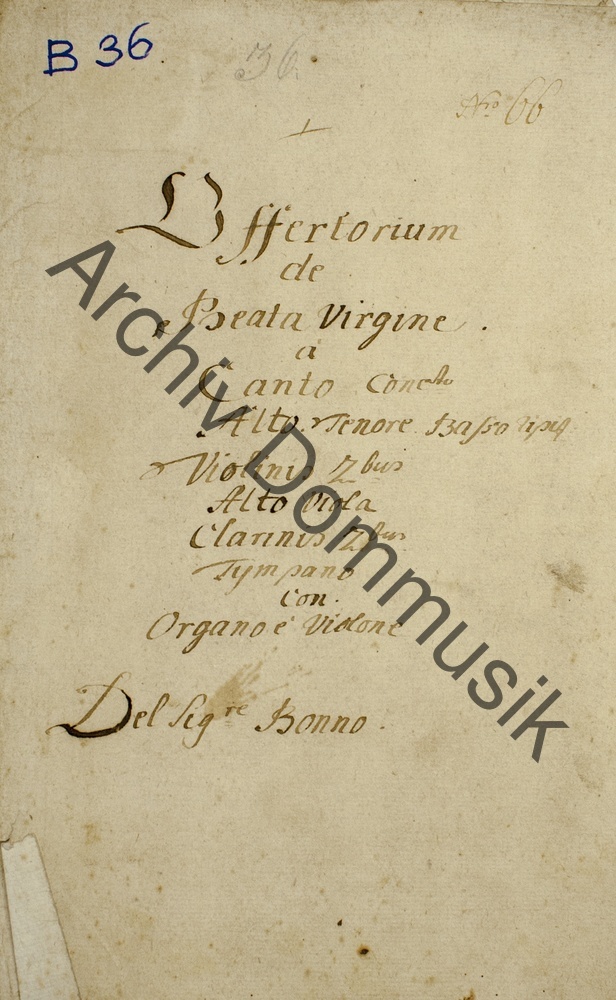 B 36
36
Nro 66
Offertorium
de
Beata Virgine.
a
Canto Conc:to
Alto. Tenore Basso Rip:
Violinis 2bus
Alto Viola
Clarinis 2bus
Tympano
con.
Organo è Violone
Del Sigre Bonno.
Archiv Dommusik